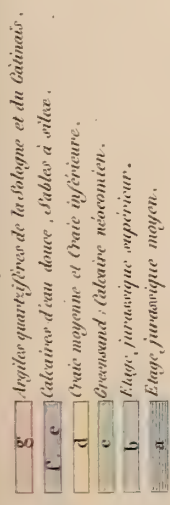 g Argiles quartzifères de la Sologne et du Gâtinais.
f. e Calcaires d'eau douce, Sables à silex.
d Craie moyenne et Craie inférieure.
c Greensand; Calcaire néocomien.
b Etage jurassique supérieur.
a Etage jurassique moyen.